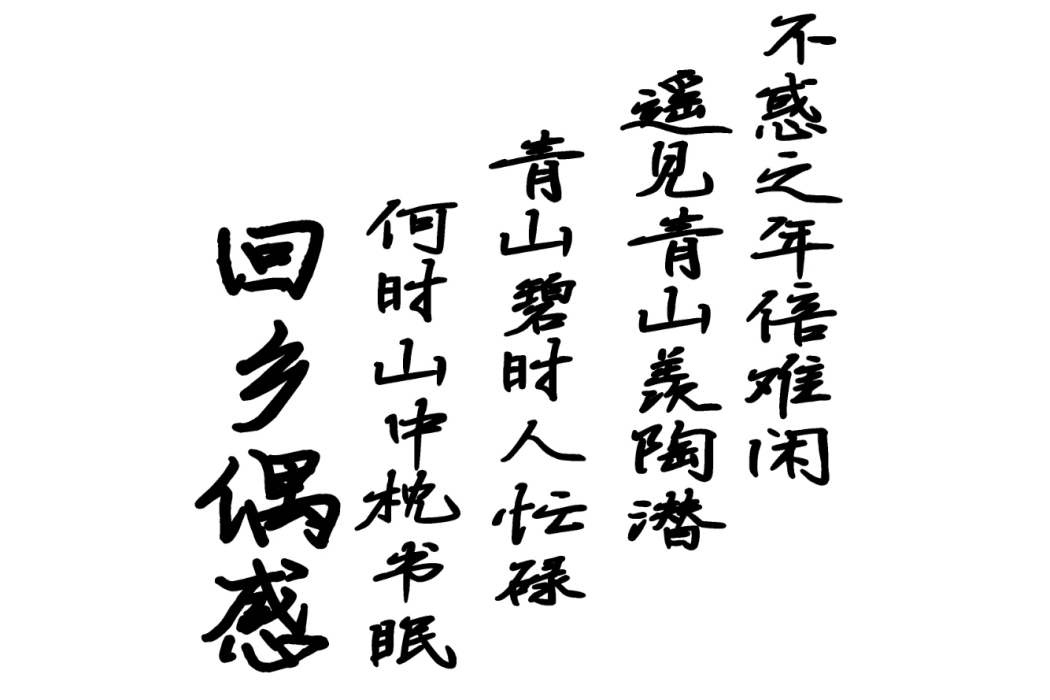 不惑之年倍难闲
遥见青山羡陶潜
青山碧时人忙碌
何时山中枕书眠
回乡偶感